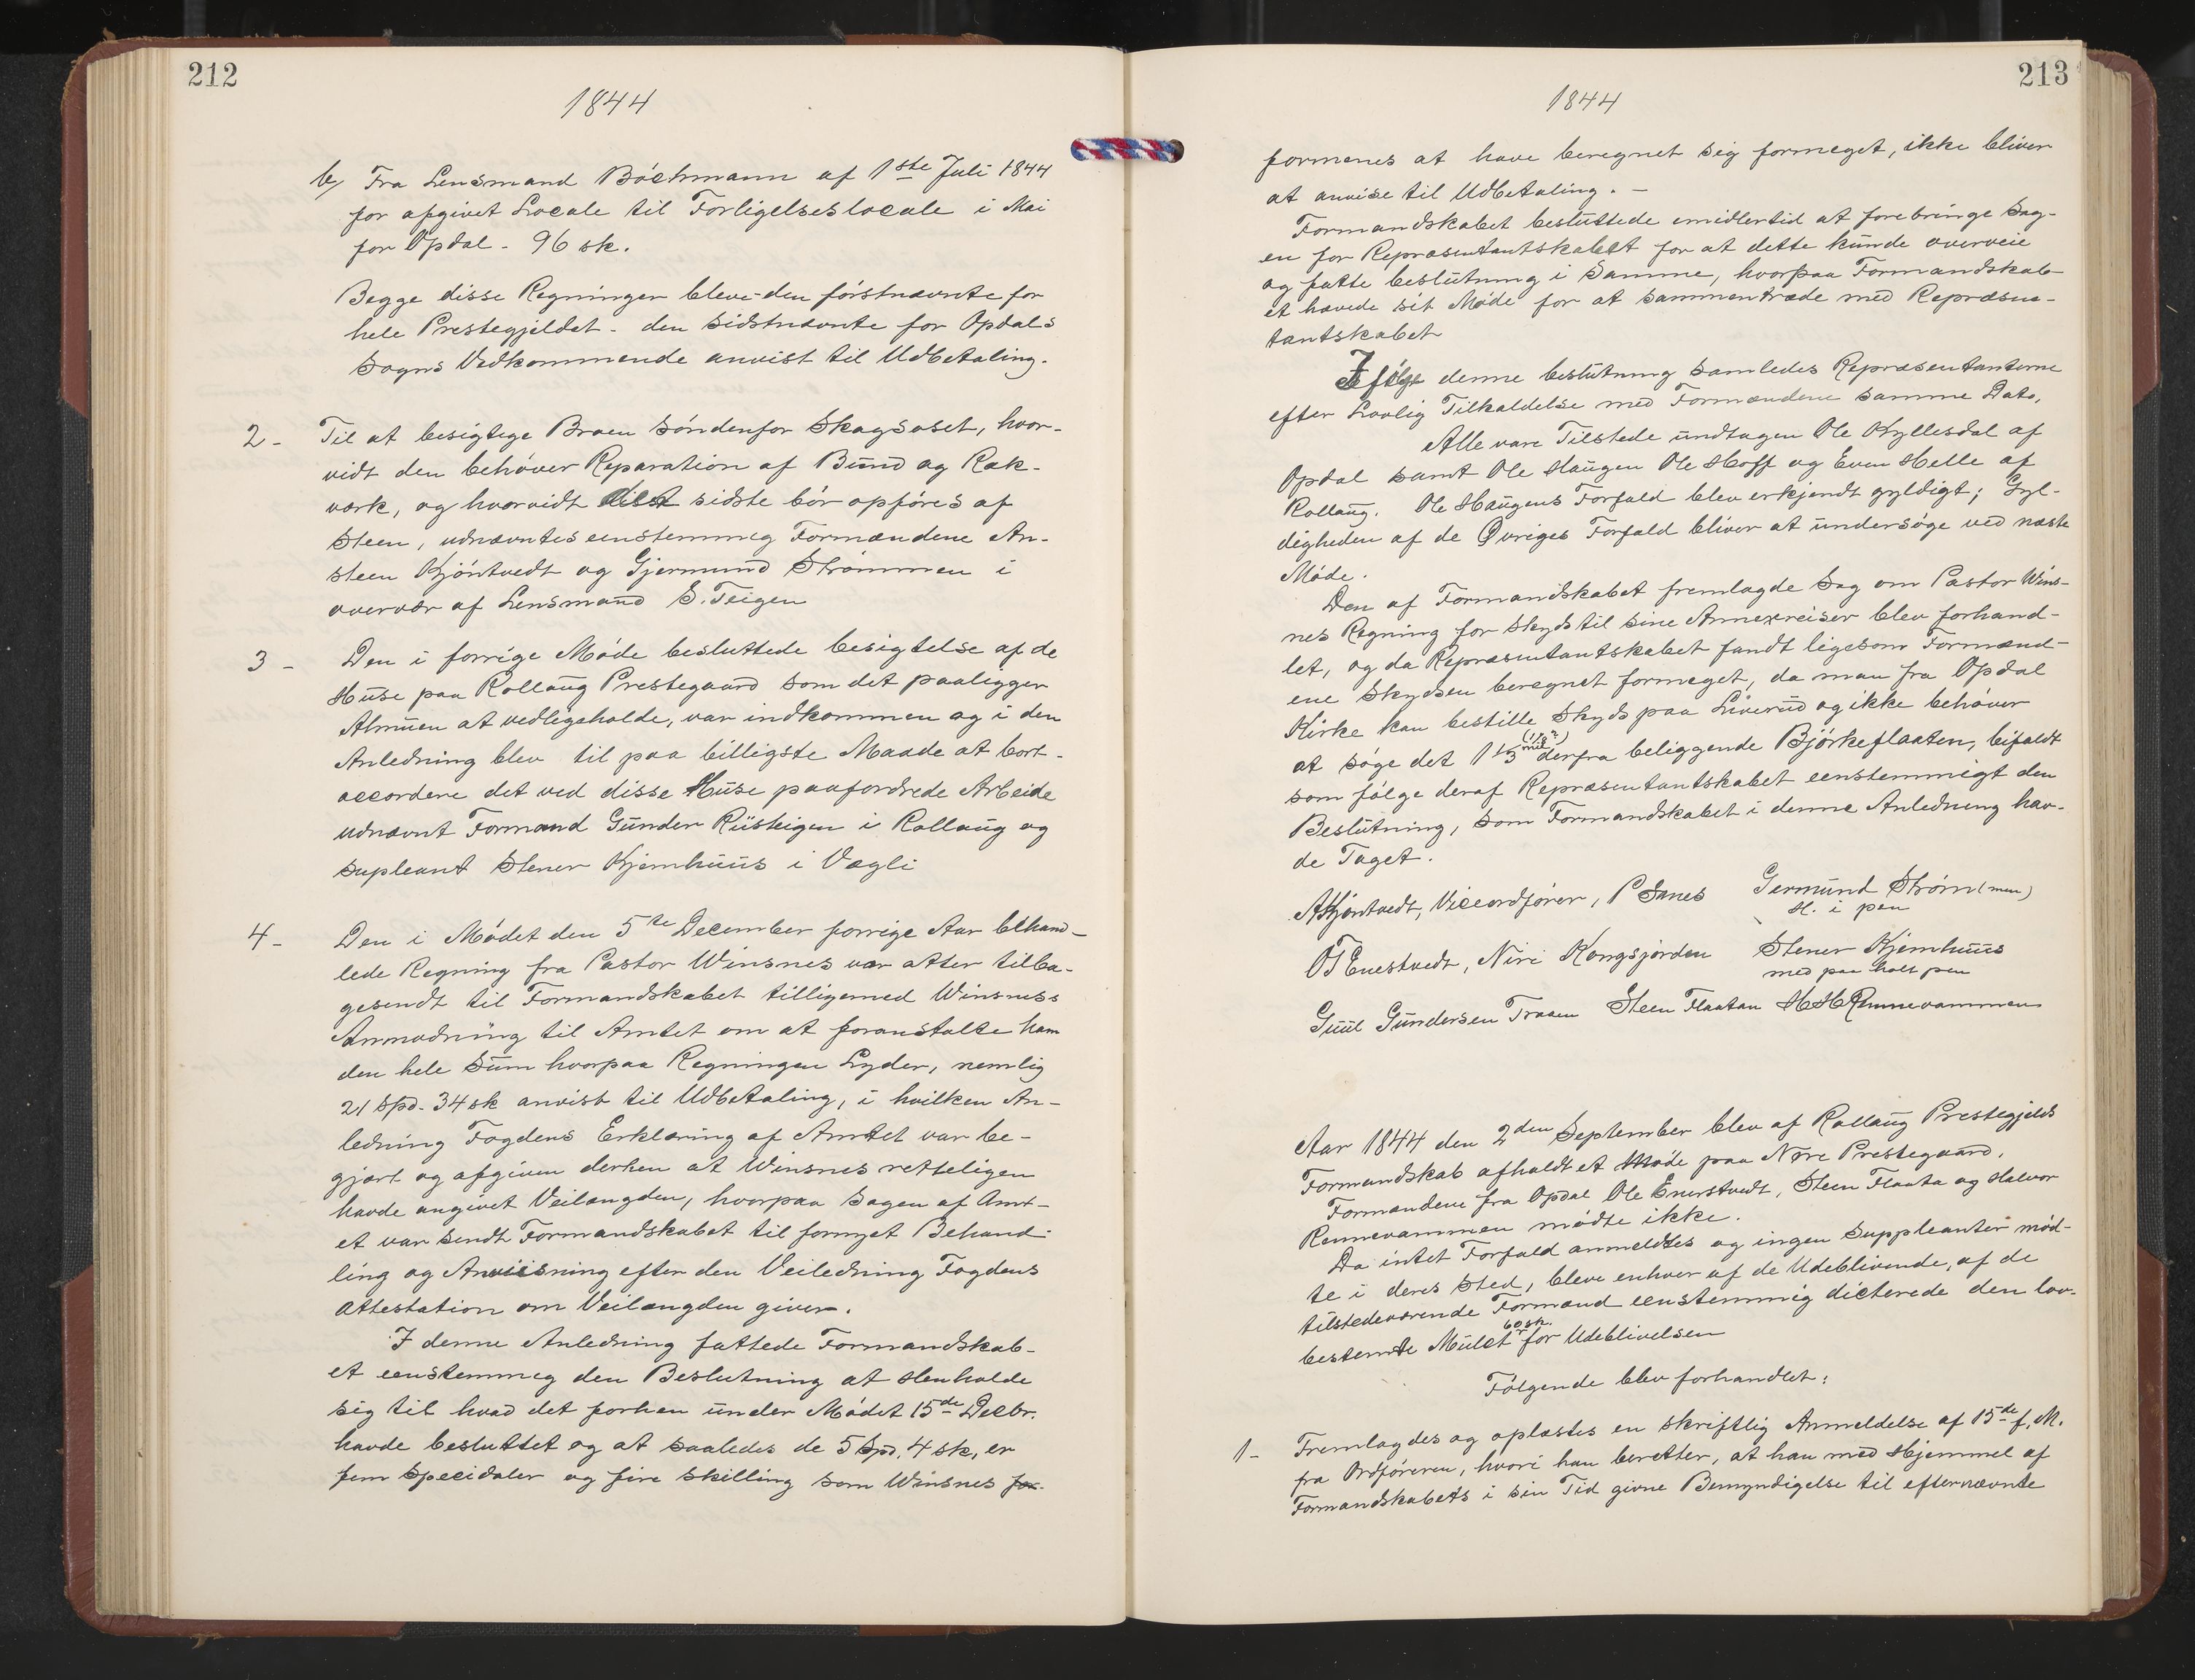 212
1844
b, Fra Lensmand Bóchmann af 1ste Juli 1844
for afgivet Locale til Forligelseslocale i Mai
for Opdal - 96 sk.
Begge disse Regninger bleve - den fórstnævnte for
hele Prestegjeldet - den sidstnævnte for Opdals
Sogns Vedkommende anvist til Udbetaling.
2 - Til at besigtige Broen sóndenfor Skagsoset, hvor-
vidt den behóver Reparation af Bund og Ræk-
værk, og hvorvidt sidste bór opfóres af
Steen, udnævntes eenstemmig Formændene An-
steen Kjóntvedt og Gjermund Strómmen i
overvær af Lensmand S. Teigen
3 - Den i forrige Móde besluttede besigtelse af de
Huse paa Rollaug Prestegaard som det paaligger
Almuen at vedligeholde, var indkommen og i den
Anledning blev til paa billigste Maade at bort-
accordere det ved disse Huse paafordrede Arbeide
udnævnt Formand Gunder Rústeigen i Rollaug og
supleant Stener Kjemhuus i Vægli
4 - Den i Módet den 5te December forrige Aar behand-
lede Regning fra Pastor Winsnes var atter tilba-
gesendt til Formandskabet tilligemed Winsness
Anmodning til Amtet om at foranstalte ham
den hele Sum hvorpaa Regningen Lyder, nemlig
21 Spd. 34 sk anvist til Udbetaling, i hvilken An-
ledning Fogdens Erklæring af Amtet var be-
gjært og afgiven derhen at Winsnes retteligen
havde angivet Veilængden, hvorpaa Sagen af Amt-
et var sendt Formandskabet til fornyet Behand-
ling og Anviisning efter den Veiledning Fogdens
Attestation om Veilængden giver.
I denne Anledning fattede Formandskab-
et eenstemmig den Beslutning at Henholde
sig til hvad det forhen under Módet 15de Decbr.
havde besluttet og at saaledes de 5 Spd. 4 sk, er
fem Specidaler og fire Skilling som Winsnes for-
213
1844
formenes at have beregnet sig formeget, ikke bliver
at anvise til Udbetaling. -
Formandskabet besluttede emidlertid at forebringe Sag-
en for Repræsentantskabet for at dette kunde overveie
og fatte beslutning i Samme, hvorpaa Formandskab-
et hævede sit Móde for at sammentræde med Repræsen-
tantskabet
Ifólge denne beslutning Samledes Repræsentanterne
efter Lovlig Tilkaldelse med Formændene samme Dato,
Alle vare Tilstede undtagen Ole Kyllesdal af
Opdal samt Ole Haugen Ole Hoff og Even Helle af
Rollaug. Ole Haugens Forfald blev erkjendt gyldigt; Gyl-
digheden af de Øvriges Forfald bliver at undersóge ved næste
Móde.
Den af Formandskabet fremlagde Sag om Pastor Wins-
nes Regning for Skyds til sine Annexreiser blev forhand-
let, og da Repræsentantskabet fandt ligesom Formænd-
ene Skydsen beregnet formeget, da man fra Opdal
Kirke kan bestille Skyds paa Liverud og ikke behóver
at sóge det 1 1/3 mil (1/8?) derfra beliggende Bjórkeflaaten, bifaldt
som fólge deraf Repræsentantskabet eenstemmigt den
Beslutning, som Formandskabet i denne Anledning hav-
de Taget.
AKjóntvedt, Viceordfórer, P Sanes Germund Stróm(men)
H. i pen
OTEnestvedt, Niri Kongsjorden Stener Kjemhuus
med paa holt pen
Guul Gundersen Traaen Steen Flaatan HHRennevammen
Aar 1844 den 2den September blev af Rollaug Prestegjelds
Formandskab afholdt et Móde paa Nore Prestegaard.
Formændene fra Opdal Ole Enerstvedt, Steen Flaata og Halvor
Rennevammen módte ikke.
Da intet Forfald anmeldtes og ingen Suppleanter mód-
te i deres Sted, bleve enhver af de Udeblivende, af de
tilstedeværende Formænd eenstemmig dicterede den lov-
bestemte Mulct 60 sk. for Udeblivelsen
Fólgende blev forhandlet:
1 - Fremlagdes og oplæstes en skriftlig Anmeldelse af 15de f. M.
fra Ordfóreren, hvori han beretter, at han med Hjemmel af
Formandskabets i sin Tid givne Bemyndigelse til efternævnte